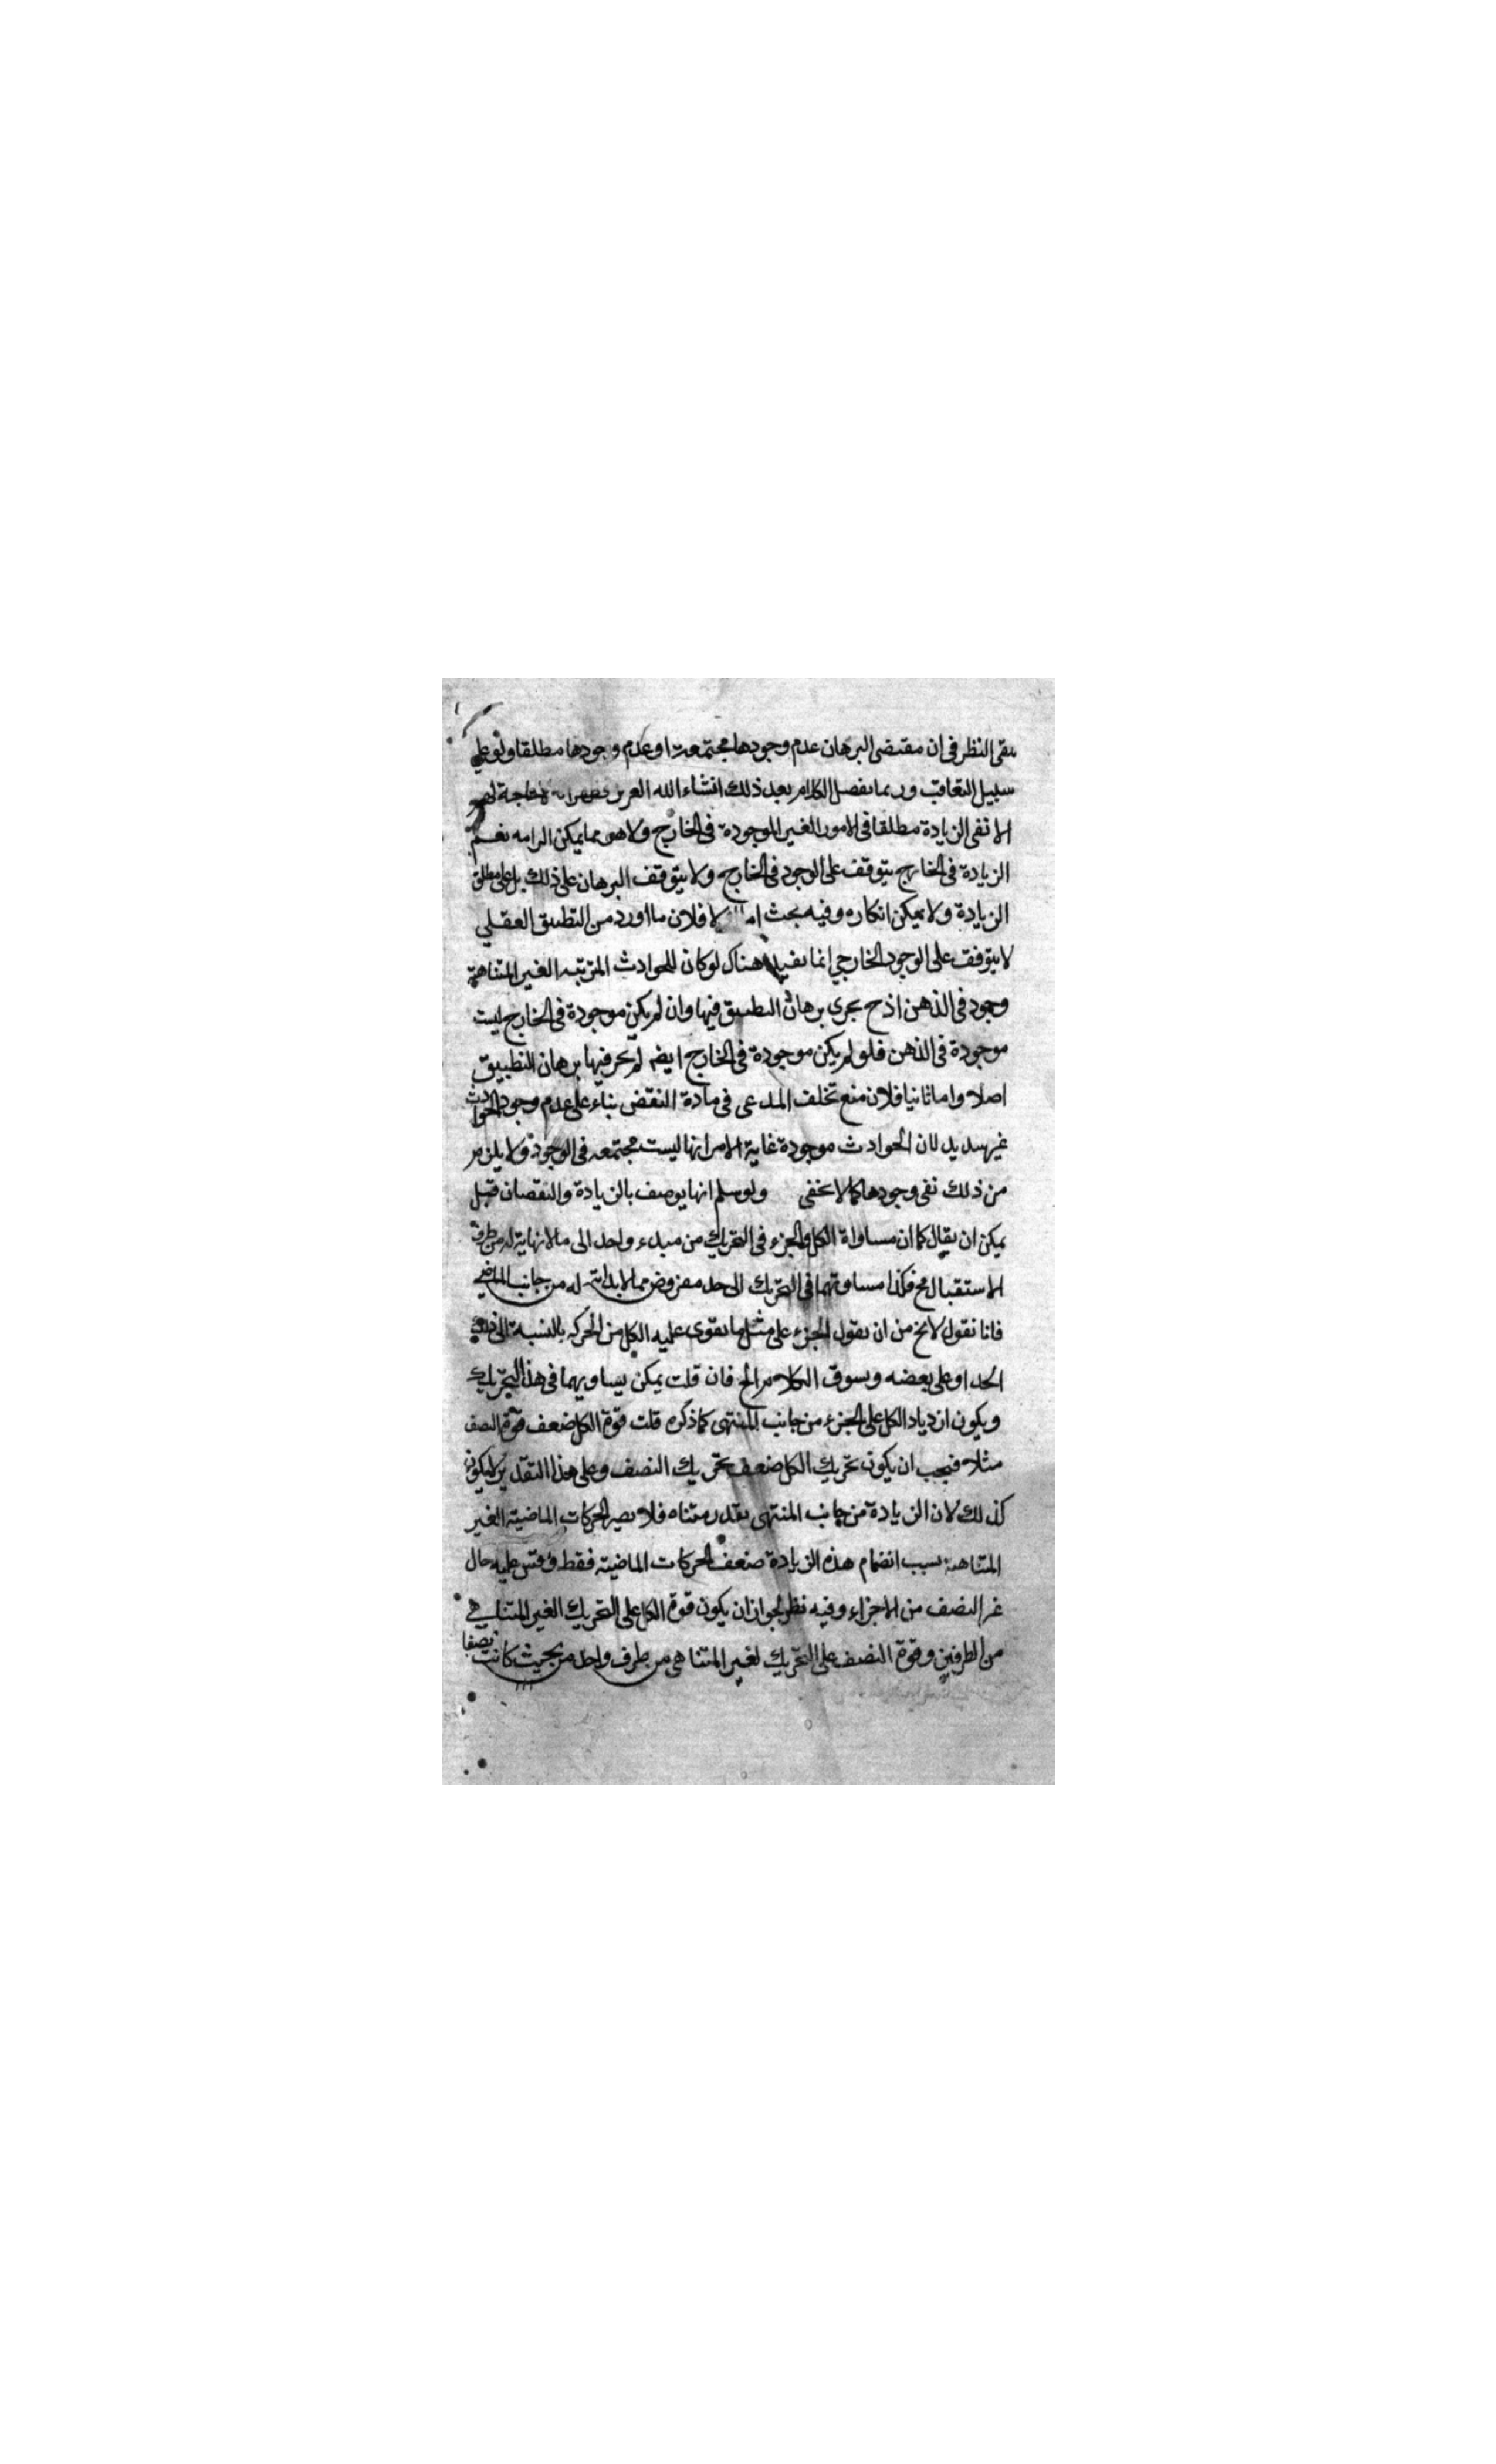 بقى النظر فى ان مقتضى البرهان عدم وجودها مجتمعة او عدم وجودها مطلقا ولو على
سبيل التعاقب وربما نفصل الكلام بعد ذلك انشاء الله العزيز
الا نفى الزيادة مطلقا فى الامور الغير الموجودة فى الخارج ولا هى مما يمكن الرامه نعم
الزيادة فى الخارج يتوقف على الوجود فى الخارج ولا يتوقف البرهان على ذلك بل على مطلق
الزيادة ولا يمكن انكاره وفيه بحث اما اولا فلان ما اورد من التطبيق العقلى
لا يتوقف على الوجود الخارجي انما يفيد هناك لو كان للحوادث المترتبه الغير المتناهية
وجود فى الذهن اذ ح يجرى برهان التطبيق فيها وان لم يكن موجودة فى الخارج ليست
موجودة فى الذهن فلو لم يكن موجودة فى الخارج ايضه لم يجر فيها برهان التطبيق
اصلا واما ثانيا فلان منع تخلف المدعى فى مادة النقض بناء على عدم وجود الحوادث
غير سديد لان الحوادث موجودة غاية الامر انها ليست مجتمعه فى الوجود ولا يلزم
من ذلك نفى وجودها كما لا يخفى ولو سلم انها يوصف بالزيادة والنقصان قبل
يمكن ان يقال كما ان مساواة الكل والجزء فى التحريك من مبدء واحد الى ما لا نهاية له من طرف
الاستقبال مح فكذا مساوتهما فى التحريك الى حد مفروض مما لا بداية له من جانب الماضى
فانا نقول لا يخ من ان يقول الجزء على مثل ما يقوى عليه الكل من الحركه بالنسبة الى ذلك
الحد او على بعضه ويسوق الكلام الخ فان قلت يمكن يساويهما فى هذا التحريك
ويكون ازدياد الكل على الجزء من جانب المنتهى كما ذكره قلت قوة الكل ضعف قوة النصف
مثلا فيجب ان يكون تحريك الكل ضعف تحريك النصف وعلى هذا التقدير لا يكون
كذلك لان الزيادة من جانب المنتهى بقدر متناه فلا يصير الحركات الماضية الغير
المتناهية بسبب انضمام هذه الزيادة ضعف الحركات الماضية فقط وقس عليه حال
غير النصف من الاجزاء وفيه نظر لجواز ان يكون قوة الكل على التحريك الغير المتناهي
من الطرفين وقوة النصف على التحريك لغير المتناهى من طرف واحد من بحيث كانت نصفا